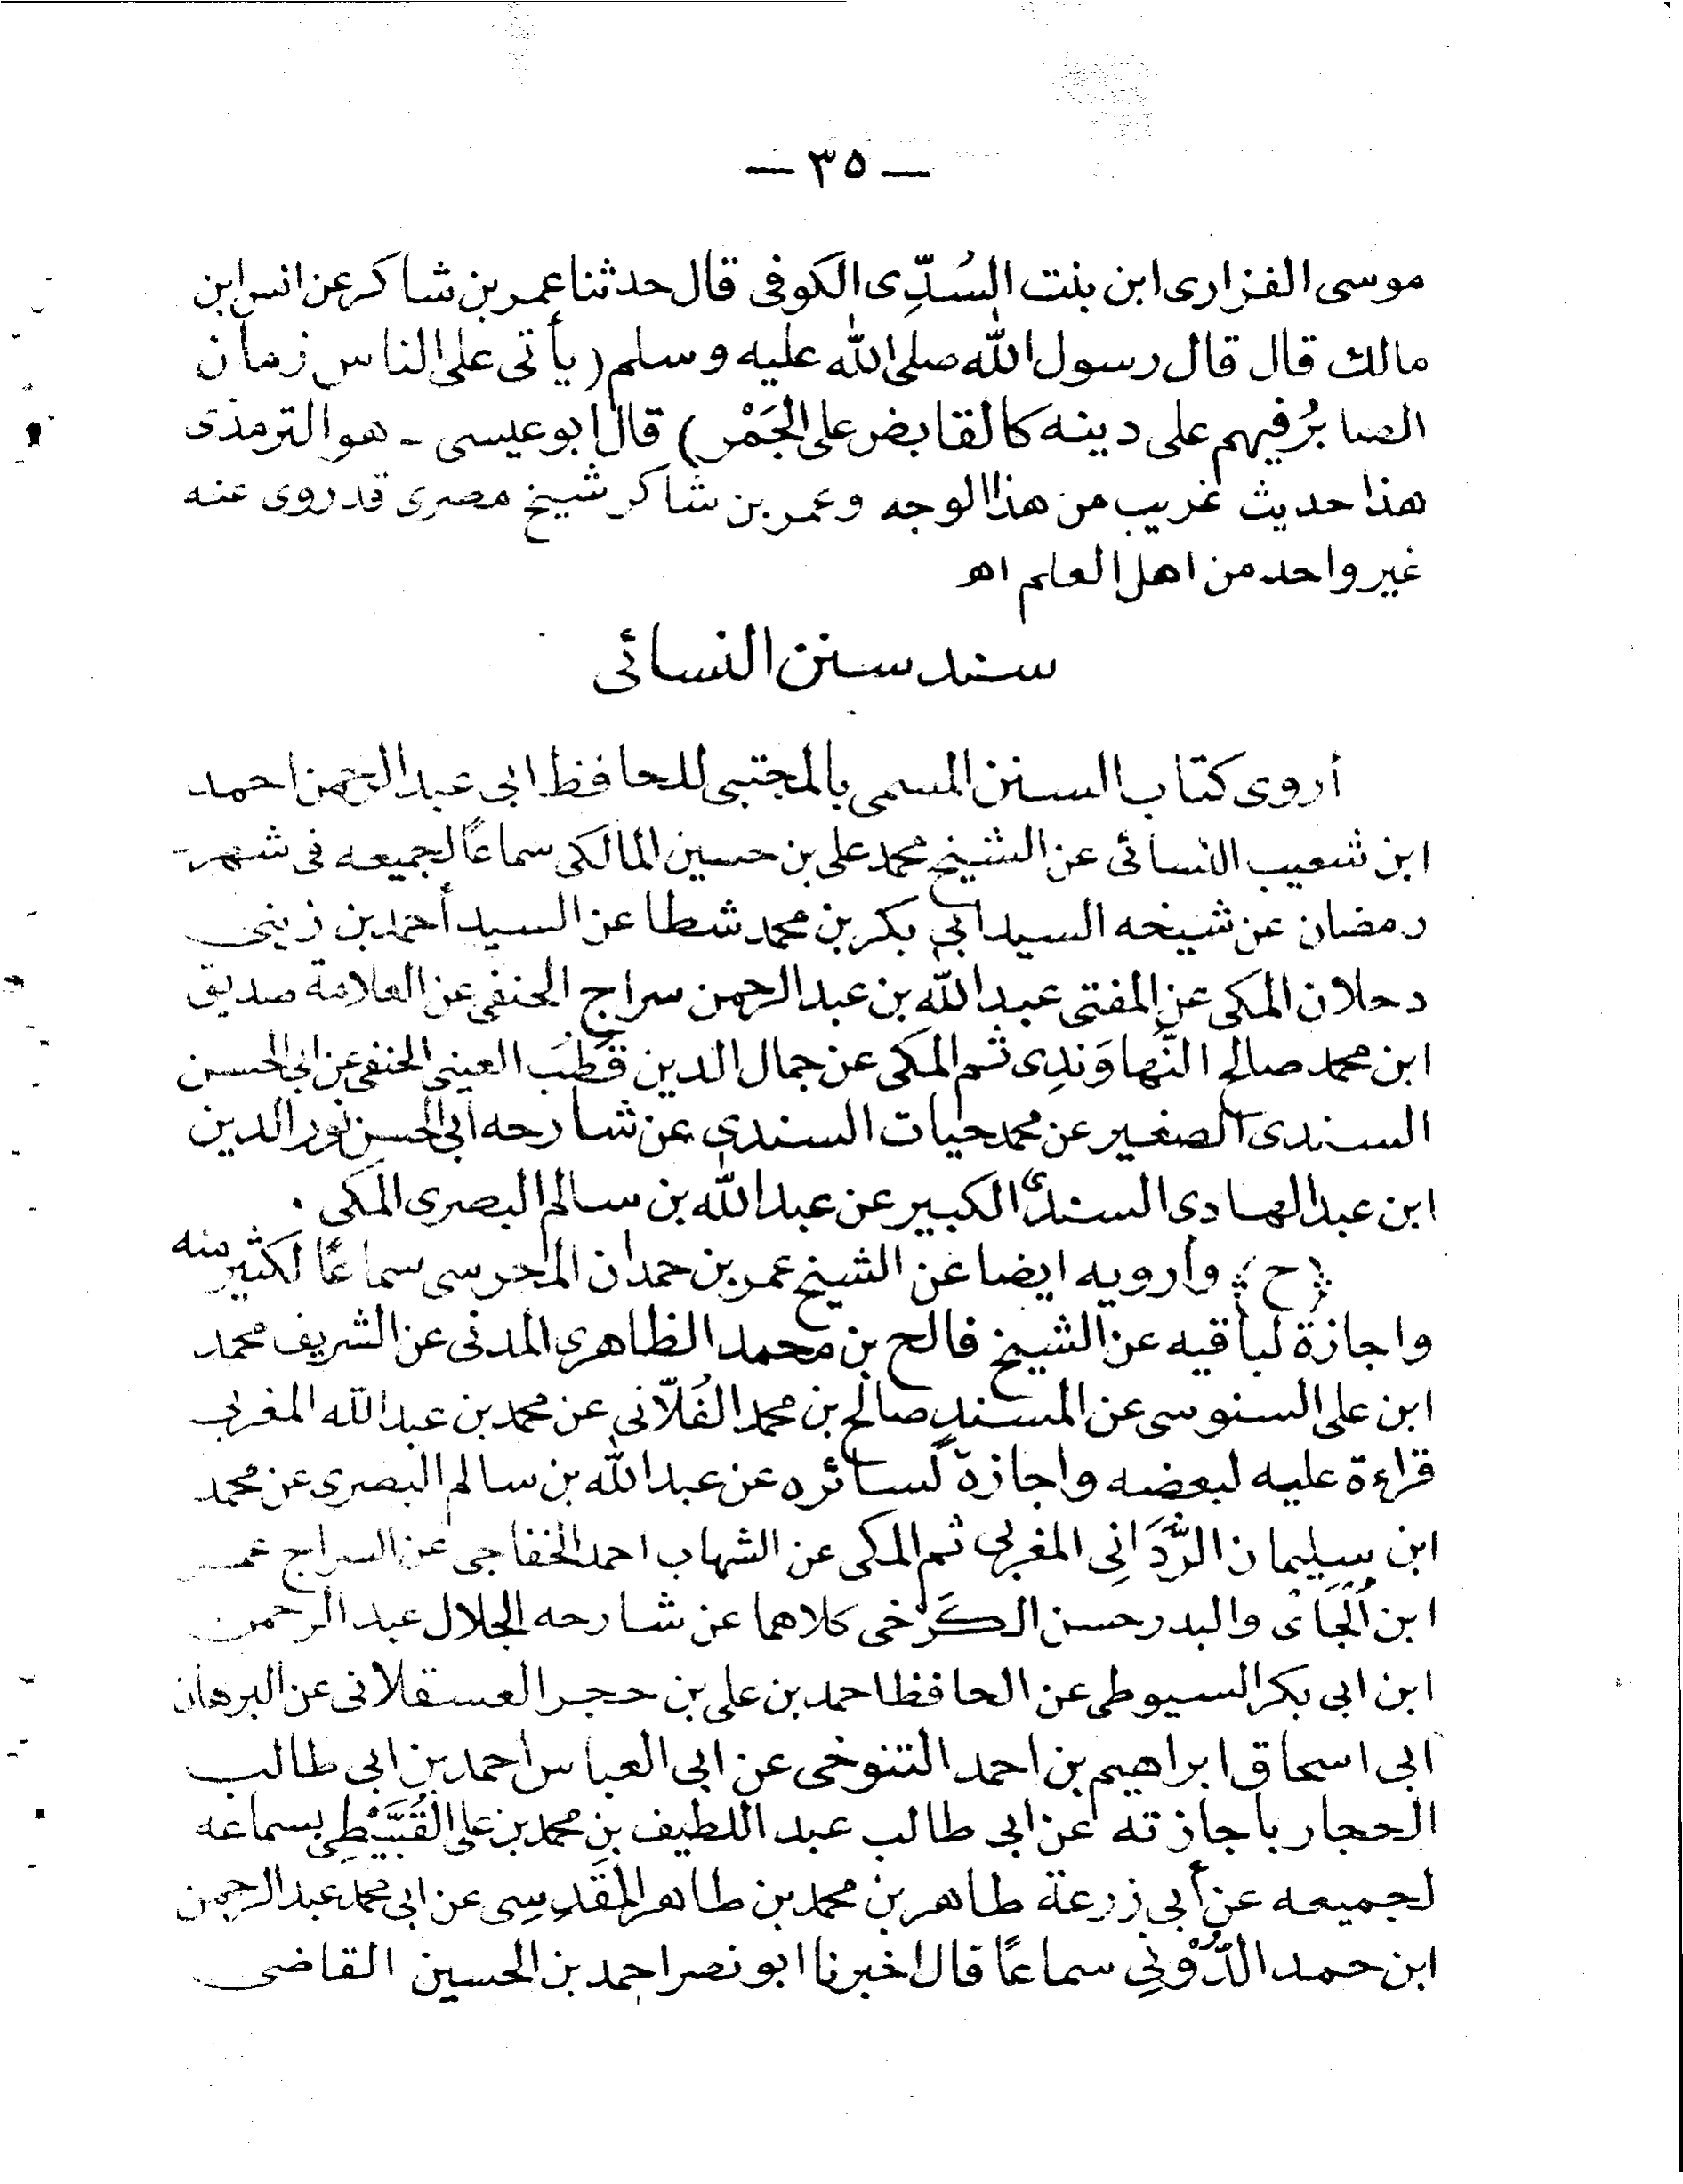 — ٣٥ —
موسى الفزارى ابن بنت السُدِّى الكوفى قال حدثنا عمر بن شاكر عن انس ابن
مالك قال قال رسول الله صلى الله عليه وسلم (يأتى على الناس زمان
الصابرُ فيهم على دينه كالقابض على الجَمْر) قال ابو عيسى - هو الترمذى
هذا حديث غريب من هذا الوجه وعمر بن شاكر شيخ مصرى قد روى عنه
غير واحد من اهل العلم اهـ
سند سنن النسائى
أروى كتاب السنن المسمى بالمجتبى للحافظ ابى عبد الرحمن احمد
ابن شعيب النسائى عن الشيخ محمد على بن حسين المالكى سماعًا لجميعه فى شهر
رمضان عن شيخه السيد ابى بكر بن محمد شطا عن السيد أحمد بن زينى
دحلان المكى عن المفتى عبد الله بن عبد الرحمن سراج الحنفى عن العلامة صديق
ابن محمد صالح النَّهاوَندِى ثم المكى عن جمال الدين قطب العينى الحنفى عن ابى الحسن
السندى الصغير عن محمد حيات السندى عن شارحه أبى الحسن نور الدين
ابن عبد الهادى السندى الكبير عن عبد الله بن سالم البصرى المكى .
(ح) وأرويه ايضا عن الشيخ عمر بن حمدان المحرسى سماعًا لكثير منه
واجازة لباقيه عن الشيخ فالح بن محمد الظاهرى المدنى عن الشريف محمد
ابن على السنوسى عن المسند صالح بن محمد الفُلّانى عن محمد بن عبد الله المغربى
قراءة عليه لبعضه واجازة لسائره عن عبد الله بن سالم البصرى عن محمد
ابن سليمان الرَّدَانِى المغربى ثم المكى عن الشهاب احمد الخفاجى عن السراج عمر
ابن الجاى والبدر حسن الكَرْخى كلاهما عن شارحه الجلال عبد الرحمن
ابن ابى بكر السيوطى عن الحافظ احمد بن على بن حجر العسقلانى عن البرهان
ابى اسحاق ابراهيم بن احمد التنوخى عن ابى العباس احمد بن ابى طالب
الحجار باجازته عن ابى طالب عبد اللطيف بن محمد بن على القُبَّيْطِى بسماعه
لجميعه عن أبى زرعة طاهر بن محمد بن طاهر المَقدِسِى عن ابى محمد عبد الرحمن
ابن حمد الدُّوْنِى سماعًا قال اخبرنا ابو نصر احمد بن الحسين القاضى